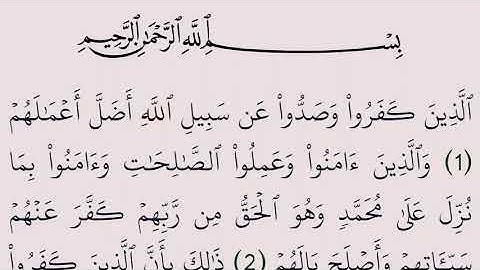 بِسْمِ ٱللَّهِ ٱلرَّحْمَٰنِ ٱلرَّحِيمِ
ٱلَّذِينَ كَفَرُوا۟ وَصَدُّوا۟ عَن سَبِيلِ ٱللَّهِ أَضَلَّ أَعْمَٰلَهُمْ
(1) وَٱلَّذِينَ ءَامَنُوا۟ وَعَمِلُوا۟ ٱلصَّٰلِحَٰتِ وَءَامَنُوا۟ بِمَا
نُزِّلَ عَلَىٰ مُحَمَّدٍ وَهُوَ ٱلْحَقُّ مِن رَّبِّهِمْ كَفَّرَ عَنْهُمْ
سَيِّـَٔاتِهِمْ وَأَصْلَحَ بَالَهُمْ (2) ذَٰلِكَ بِأَنَّ ٱلَّذِينَ كَفَرُوا۟